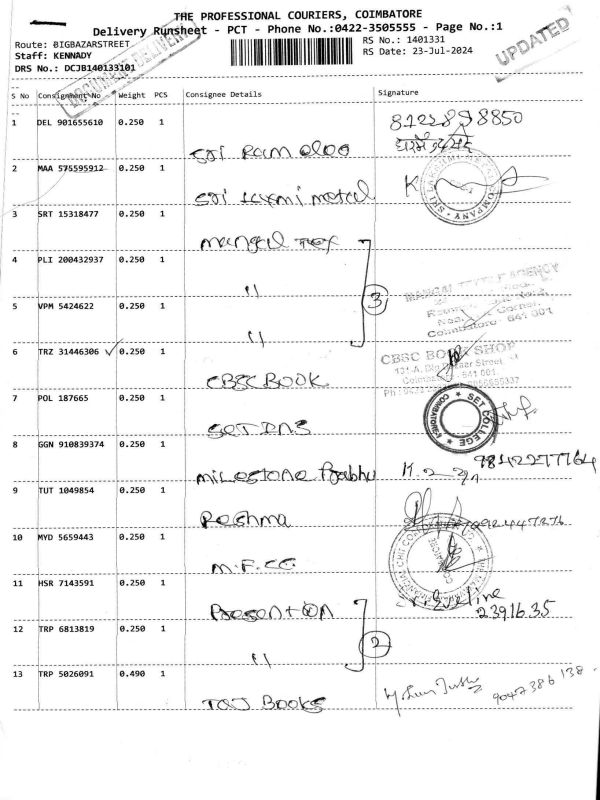 THE PROFESSIONAL COURIERS, COIMBATORE
Delivery Runsheet - PCT - Phone No.:0422-3505555 - Page No.:1
Route: BIGBAZARSTREET
RS No.: 1401331
Staff: KENNADY
RS Date: 23-Jul-2024
DRS No.: DCJB140133101
DOCUMENT DELIVERY
UPDATED
S No Consignment No Weight PCS Consignee Details Signature
1 DEL 901655610 0.250 1 8122898850
Sri Ram
2 MAA 575595912 0.250 1
Sri Laxmi metal
SRI LAKSHMI METAL COMPANY
3 SRT 15318477 0.250 1
Mangal Tex
4 PLI 200432937 0.250 1
"
3
5 VPM 5424622 0.250 1
"
MANGAL TEXTILE AGENCY
Coimbatore - 641 001
6 TRZ 31446306 0.250 1
CBSC BOOK
CBSC BOOK SHOP
7 POL 187665 0.250 1
SET INS
SET COLLEGE
COIMBATORE
8 GGN 910839374 0.250 1
Milestone Prabhu 9842277764
9 TUT 1049854 0.250 1
Reshma
10 MYD 5659443 0.250 1
M.F.CC
11 HSR 7143591 0.250 1
2391635
Presention
12 TRP 6813819 0.250 1
"
2
13 TRP 5026091 0.490 1
TAJ BOOKS
9047386138